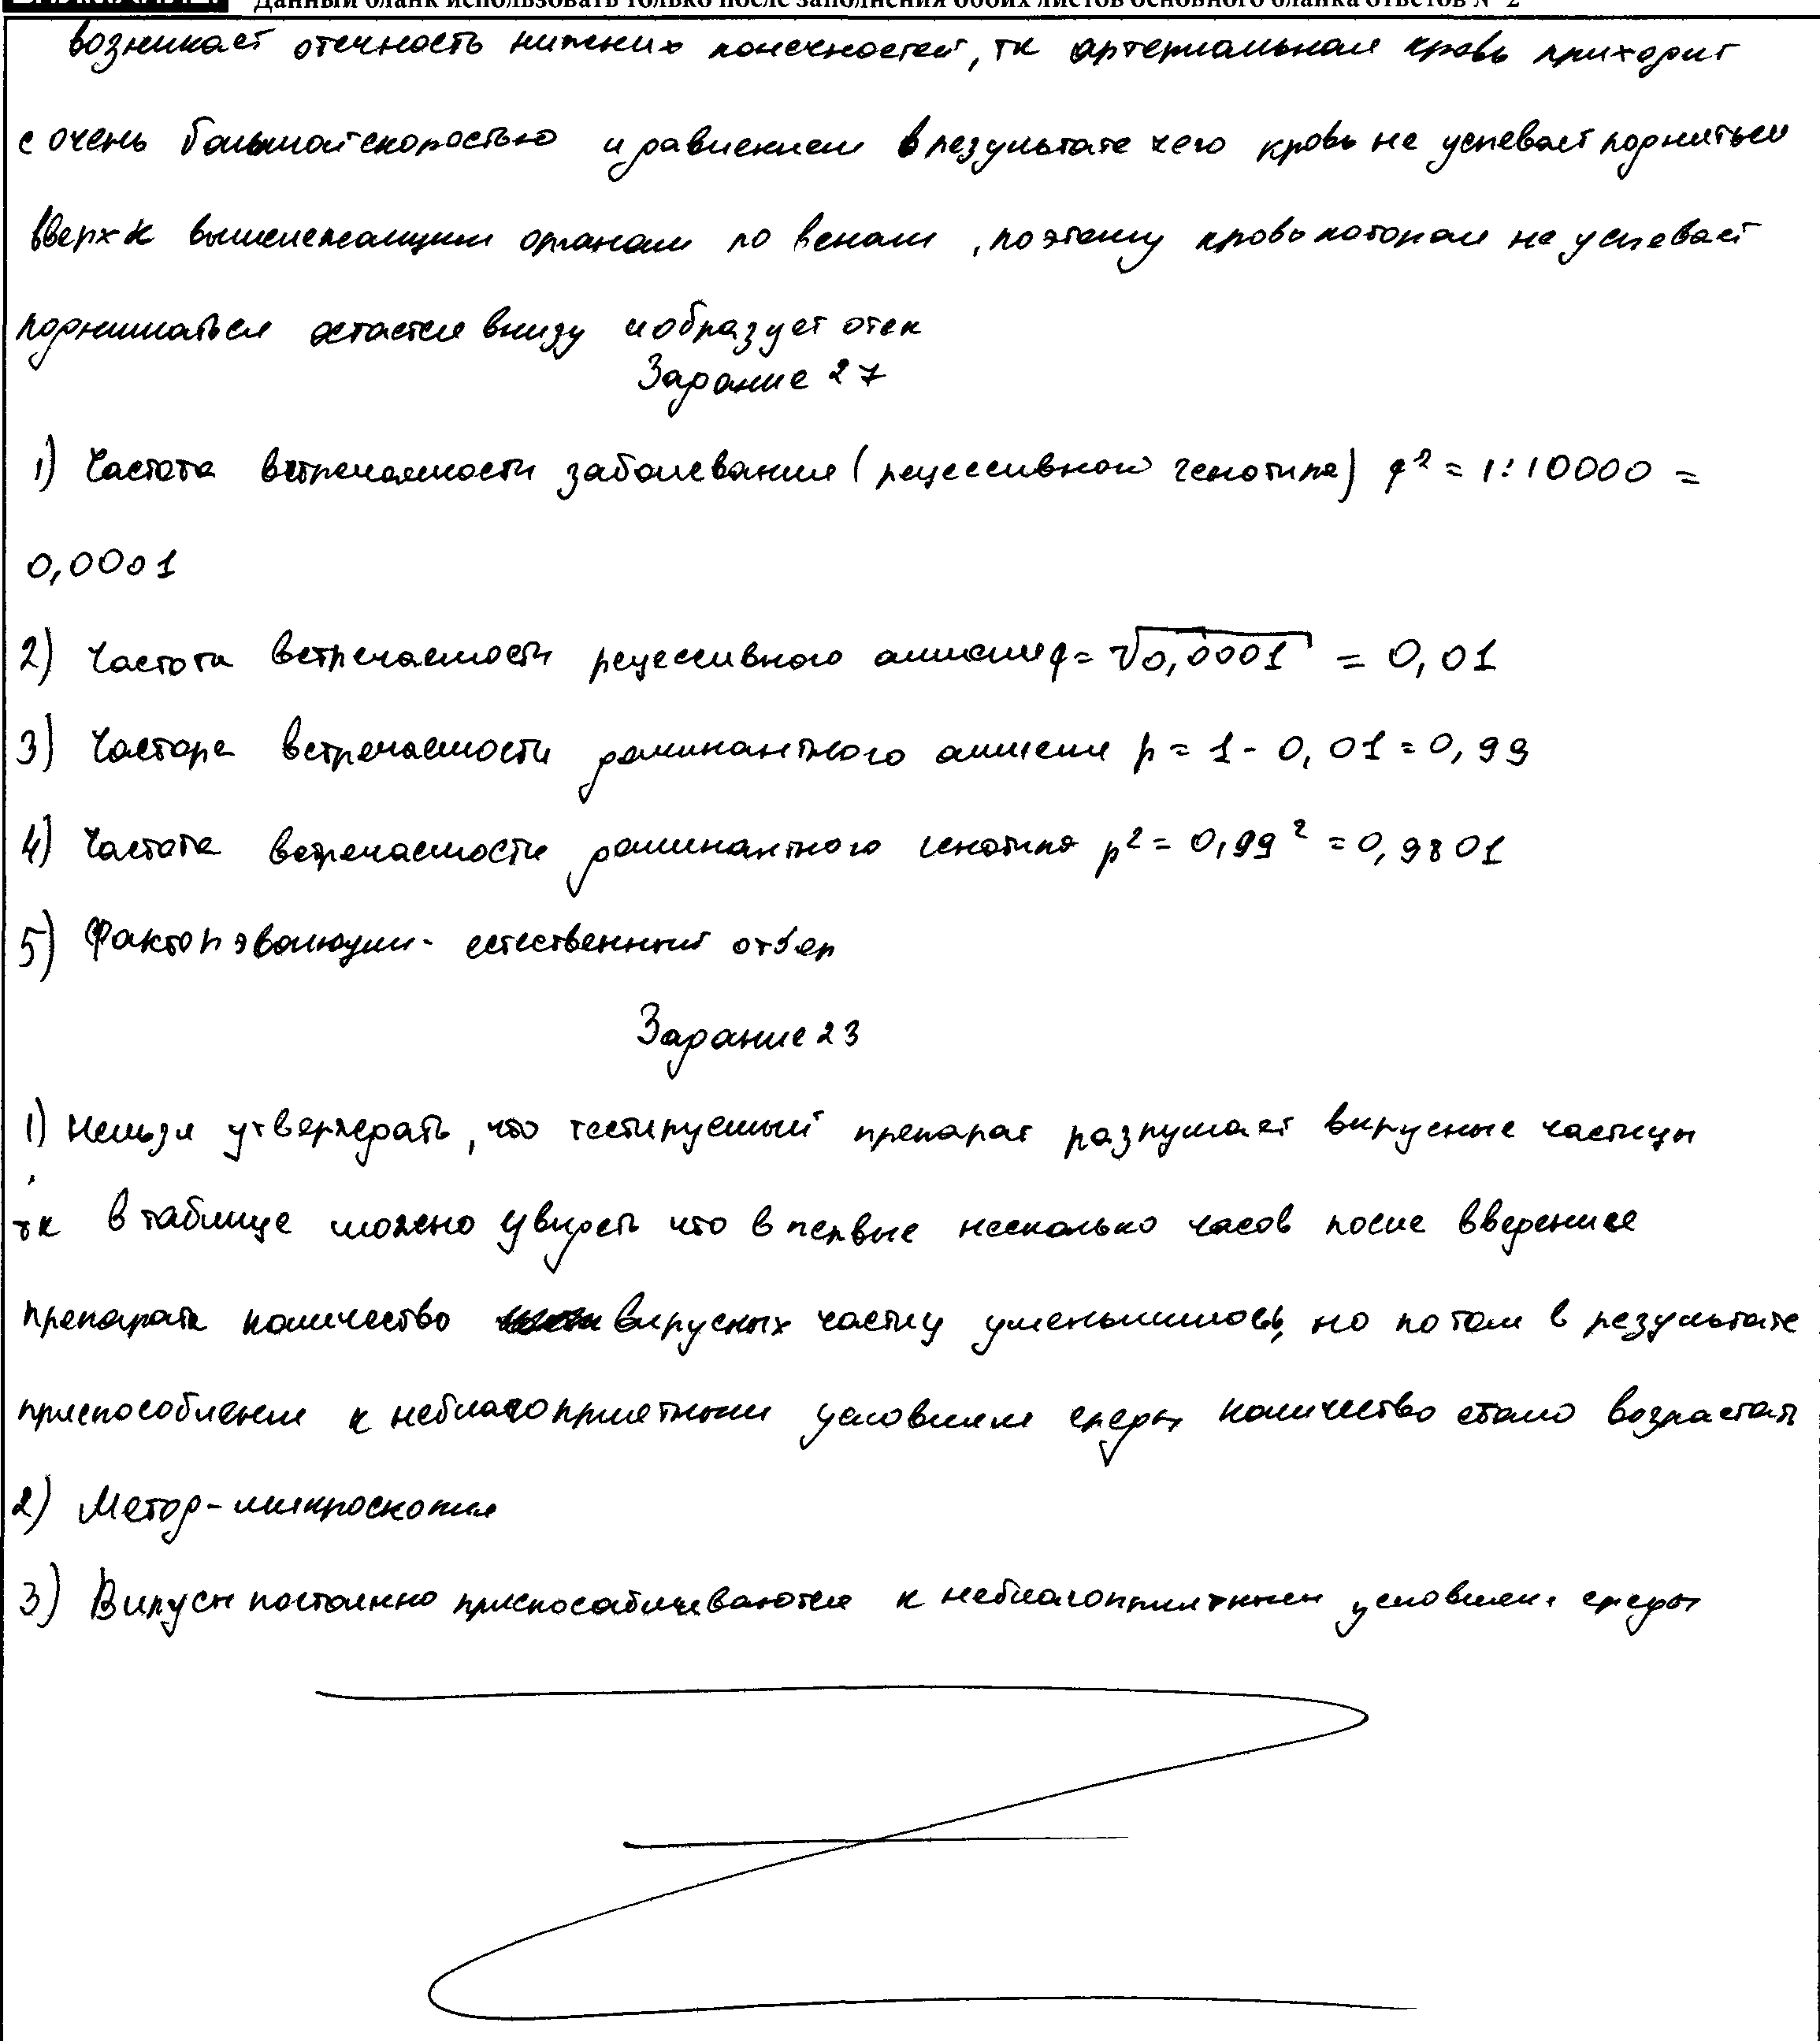 Данный бланк использовать только после заполнения обоих листов основного бланка ответов № 2
возникает отечность нижних конечностей, тк артериальная кровь приходит
с очень большой скоростью и давлением в результате чего кровь не успевает подняться
вверх к вышележащим органам по венам, поэтому кровь которая не успевает
подниматься остается внизу и образует отек
Задание 27
1) Частота встречаемости заболевания (рецессивного генотипа) q² = 1:10000 =
0,0001
2) Частота встречаемости рецессивного аллеля q = √0,0001 = 0,01
3) Частора встречаемости доминантного аллеля p = 1 - 0,01 = 0,99
4) Частота встречаемости доминантного генотипа p² = 0,99² = 0,9801
5) Фактор эволюции - естественный отбор
Задание 23
1) Нельзя утверждать, что тестируемый препарат разрушает вирусные частицы
тк в таблице можно увидеть что в первые несколько часов после введения
препарата количество вирусных частиц уменьшилось, но потом в результате
приспособления к неблагоприятным условиям среды количество стало возрастать
2) Метод - микроскопия
3) Вирусы постоянно приспосабливаются к неблагоприятным условиям среды